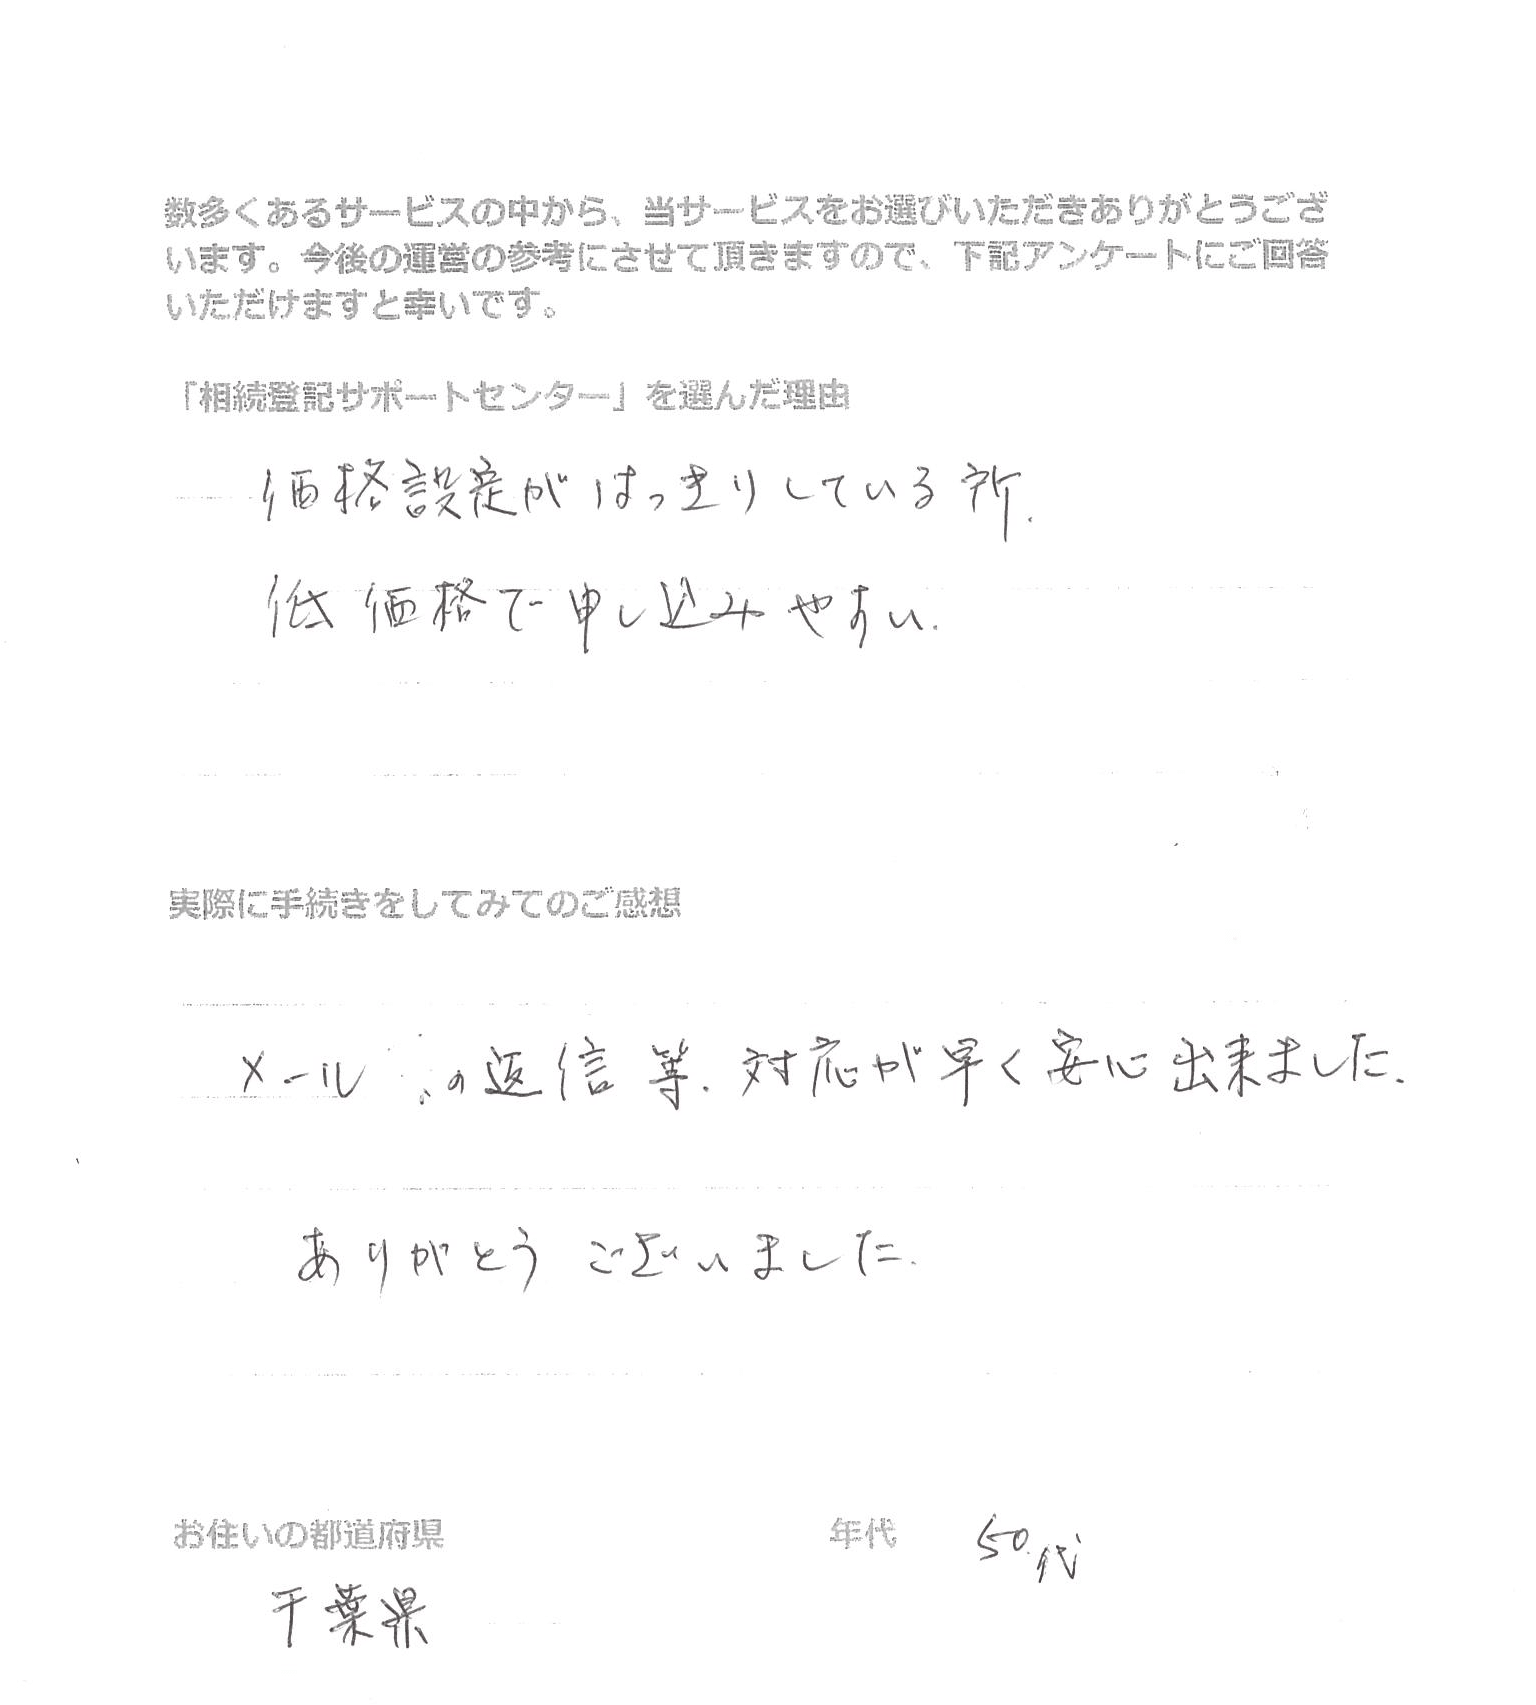 数多くあるサービスの中から、当サービスをお選びいただきありがとうござ
います。今後の運営の参考にさせて頂きますので、下記アンケートにご回答
いただけますと幸いです。
「相続登記サポートセンター」を選んだ理由
価格設定がはっきりしている所.
低価格で申し込みやすい.
実際に手続きをしてみてのご感想
メールの返信等.対応が早く安心出来ました.
ありがとうございました.
お住いの都道府県
年代 50代
千葉県